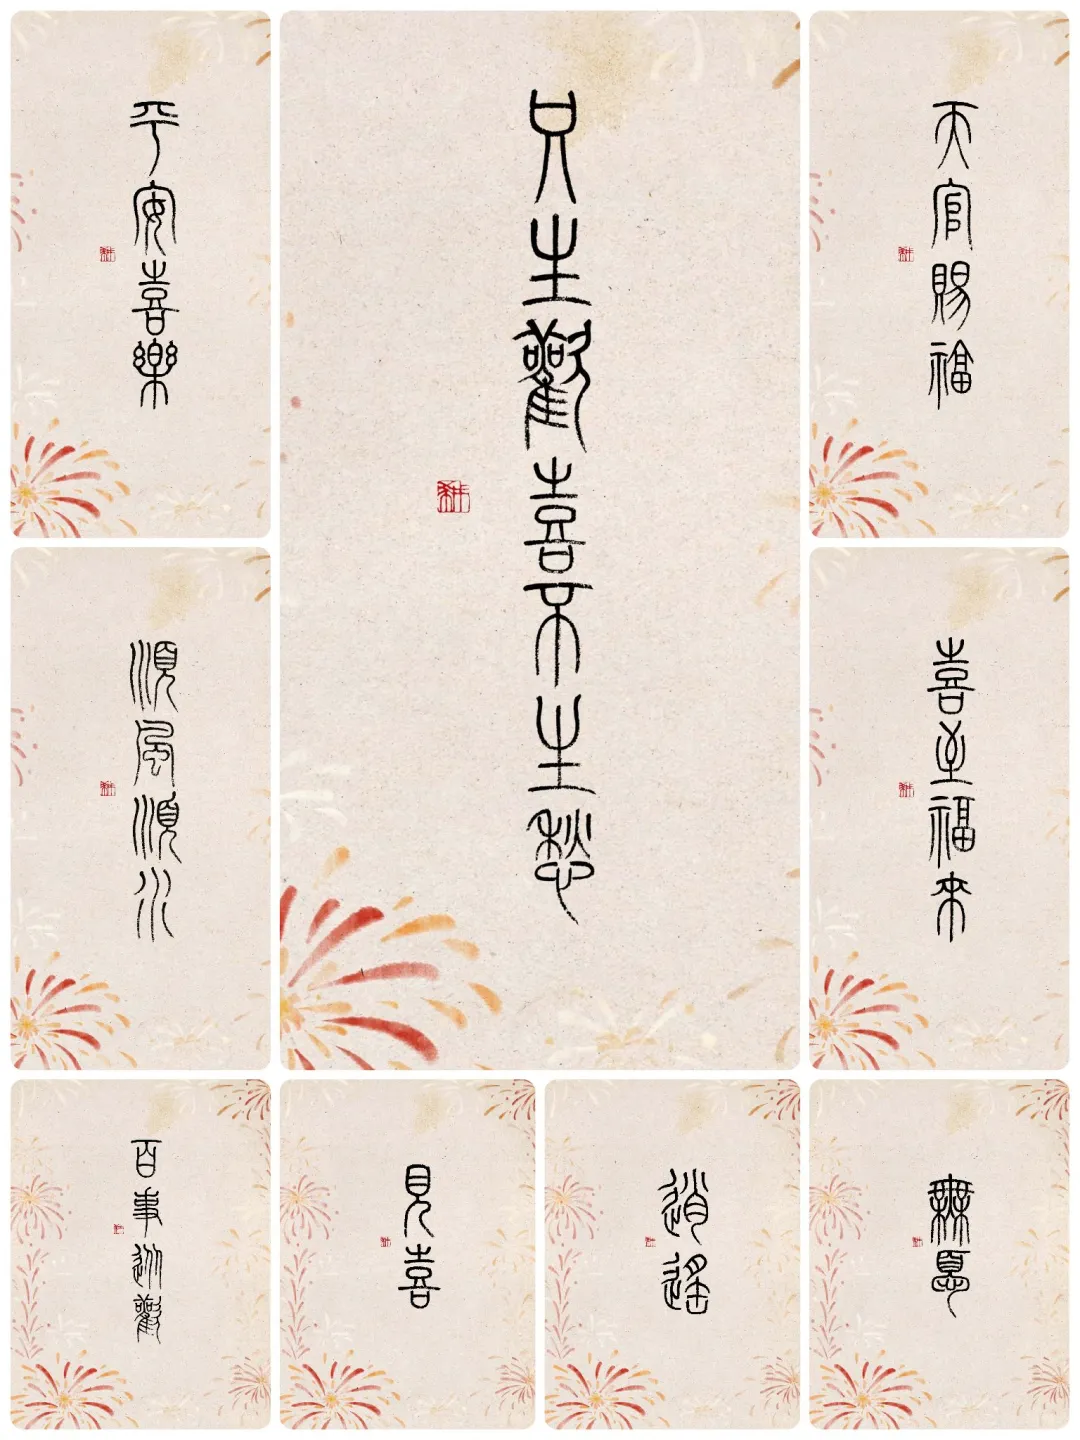 平安喜樂
只生歡喜不生愁
天官賜福
順風順水
喜至福來
百事從歡
見喜
逍遙
無憂